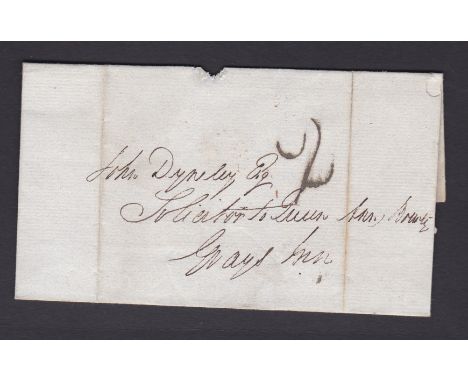 2
John Dyneley Esq
Solicitor to Queen Anns Bounty
Grays Inn